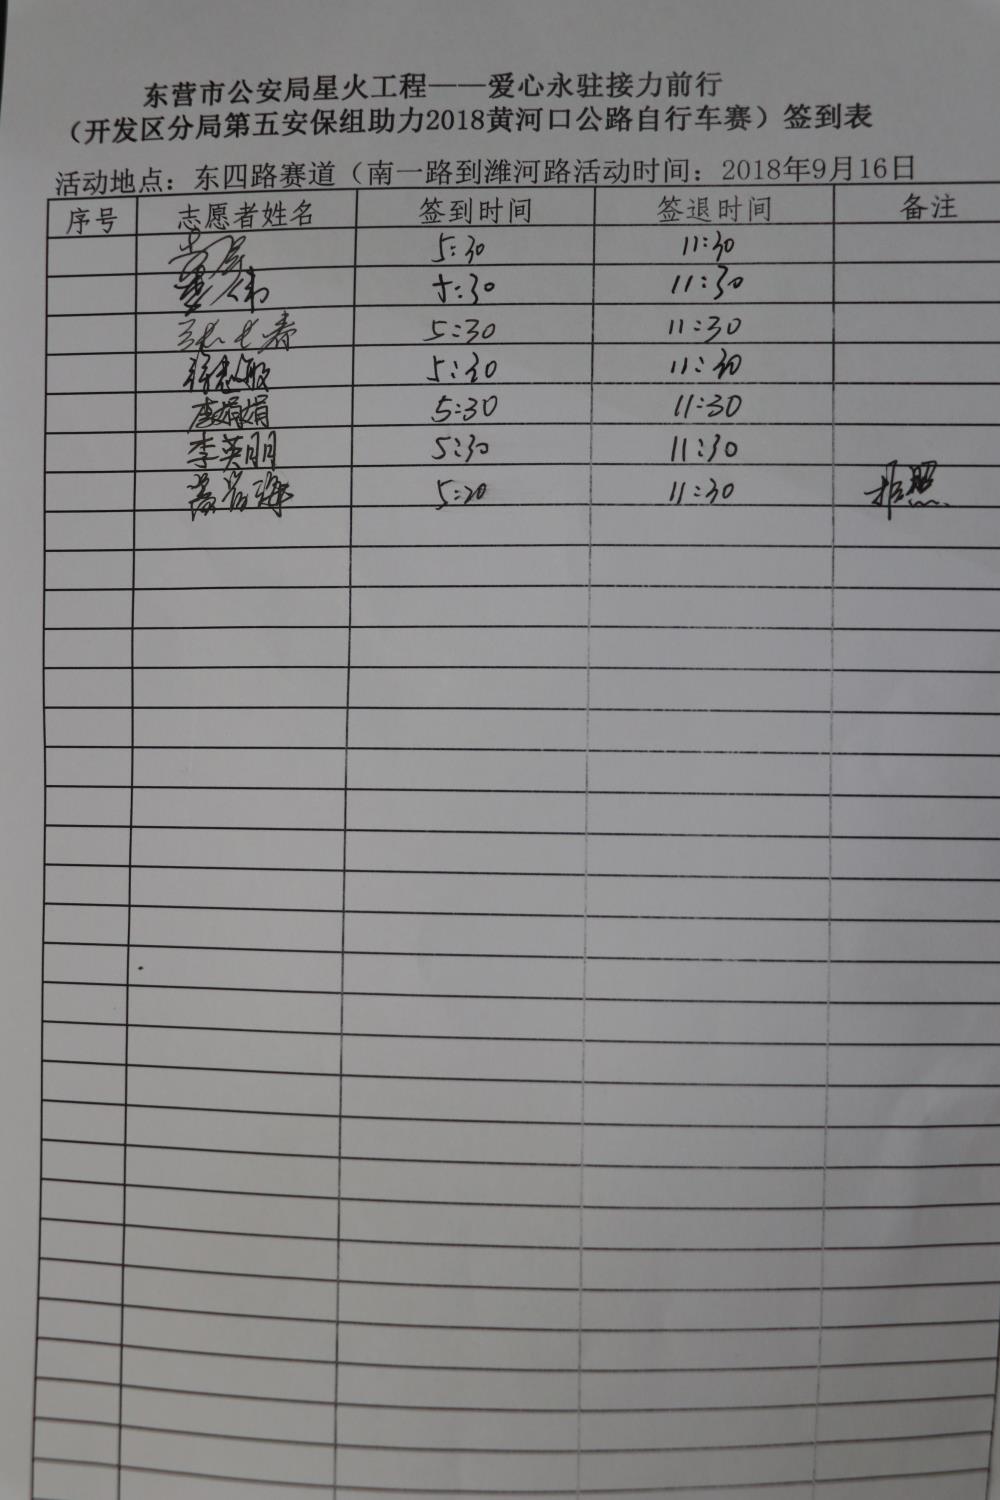 东营市公安局星火工程——爱心永驻接力前行
（开发区分局第五安保组助力2018黄河口公路自行车赛）签到表
活动地点：东四路赛道（南一路到潍河路活动时间：2018年9月16日
序号 志愿者姓名 签到时间 签退时间 备注
5:30 11:30
5:30 11:30
5:30 11:30
5:30 11:30
李娟娟 5:30 11:30
李英明 5:30 11:30
5:20 11:30